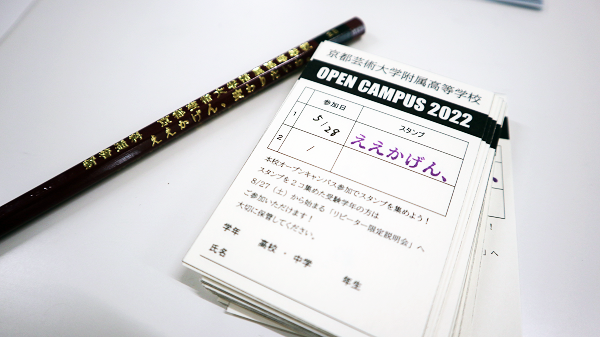 京都芸術大学附属高等学校
OPEN CAMPUS 2022
参加日 スタンプ
1 5/28 ええかげん、
2 /
本校オープンキャンパス参加でスタンプを集めよう!
スタンプを2コ集めた受験学年の方は
8/27(土)から始まる「リピーター限定説明会」へ
ご参加いただけます!
大切に保管してください。
学年 高校・中学 年生
氏名
ええかげん、